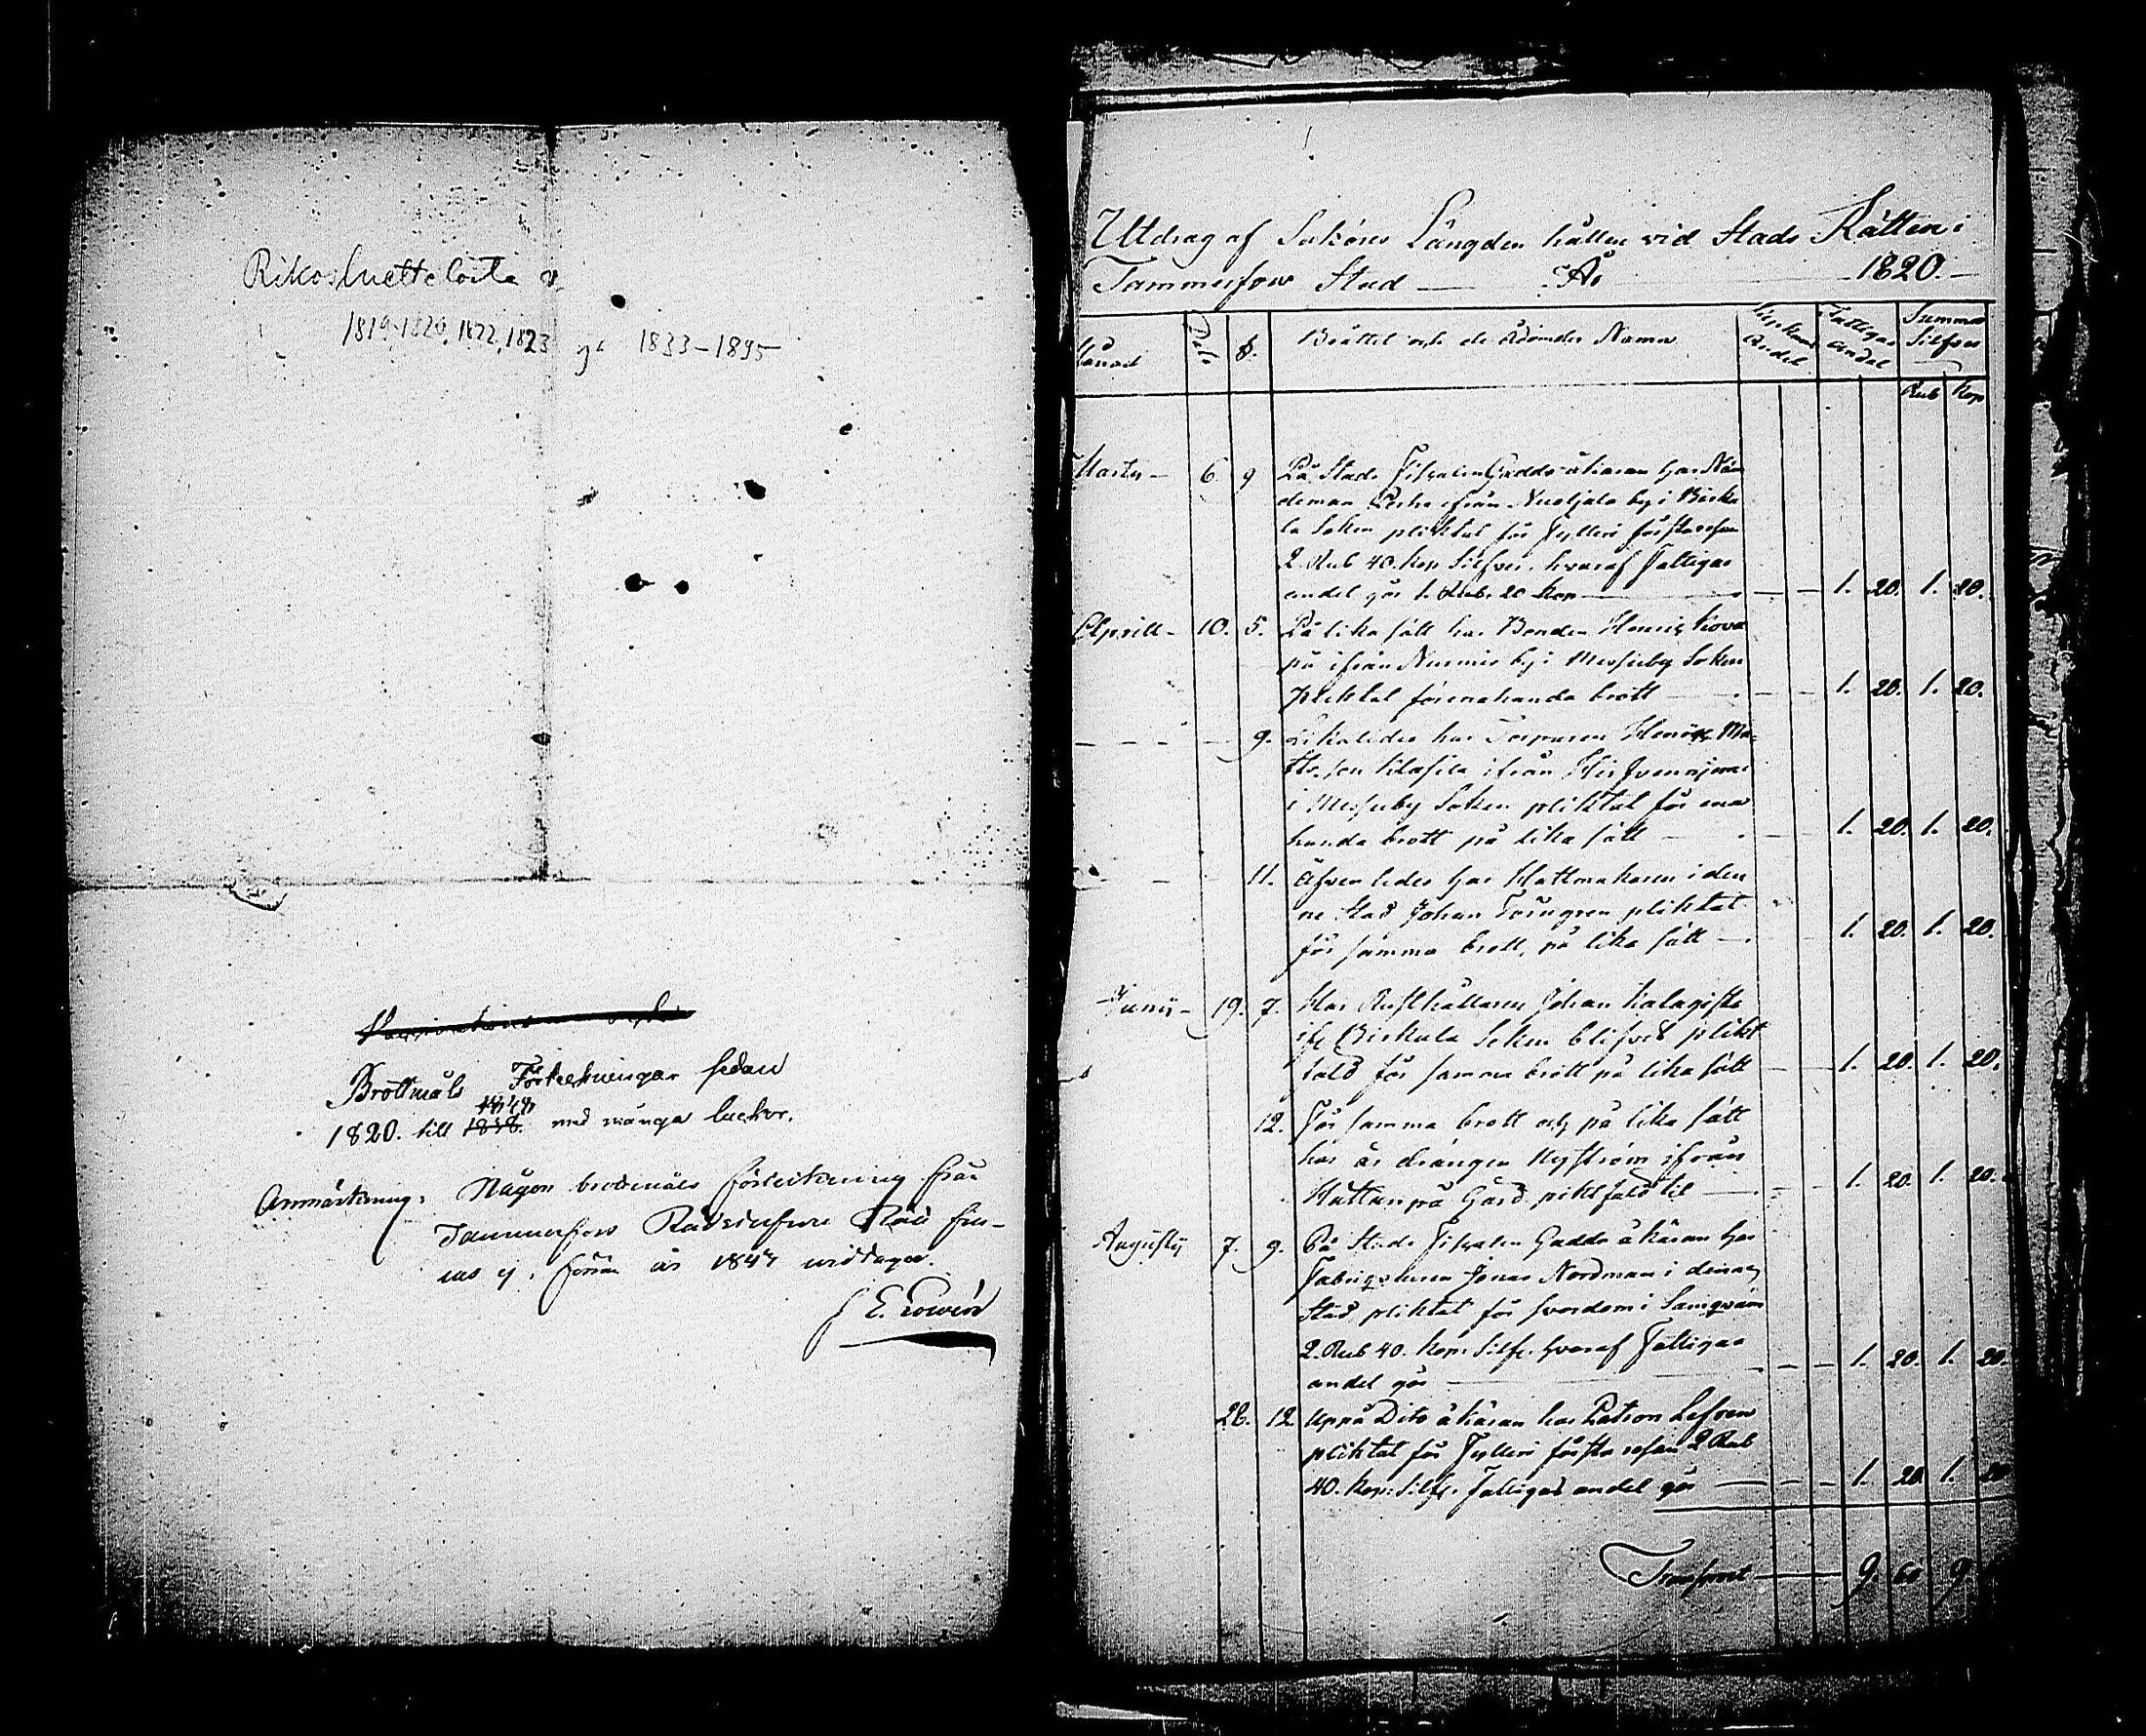 Rikosluetteloita
1819-1820, 1822, 1823 ja 1833-1895
Brottmåls Förteckningar sedan
1820. till 1847 med många luckor.
Anmärkning: Någon brottmåls förteckning från
Tammerfors Rådstufvu Rätt fin-
nes ej, förrän år 1847 vidtager.
Utdrag af Saköres Längden hållen vid Stads Rätten i
Tammerfors Stad — År — 1820.
Månad Dato §. Brottet och de Sakfälldes Namn Fattigas andel Summa Silfver
Rub Kop
Martii - 6 9 På Stads Fiscalen Gadds åkäran har Näm
deman ifrån by i Birka
la Soken pliktat för Fylleri första resan
2. Rub 40. Kop. Silfver, hvaraf Fattigas
andel gör 1. Rub. 20 Kop — 1. 20. 1. 20.
Aprill - 10. 5. På lika sätt har Bonden Henric
på ifrån Nurmis by i Messuby Soken
pliktat för enahanda brott — 1. 20. 1. 20.
9. Likaledes har Torparen Henric Ma-
ts-son ifrån
i Messuby Soken pliktat för ena
handa brott på lika sätt — 1. 20. 1. 20.
11. Äfven ledes har Hattmakaren i den
ne Stad Johan Torngren pliktat
för samma brott, på lika sätt — 1. 20. 1. 20.
Junii - 19. 7. Har Rusthållaren Johan
ifr. Birkala Soken blifvit plikt
fäld för samma brott på lika sätt — 1. 20. 1. 20.
12. För samma brott och på lika sätt
här är drängen Nyström ifrån
Hattanpä Gård pliktfäld til — 1. 20. 1. 20.
Augusty 7. 9. På Stads Fiscalen Gadds åkäran har
Fabriqeuren Jonas Nordman i denne
Stad pliktat för
2. Rub 40. Kop. Silfr. hvaraf Fattigas
andel gör — 1. 20. 1. 20.
28. 12. Uppå Dito åkäran har Patron Lefren
pliktat för Fylleri första resan 2 Rub
40. Kop: Silfr. Fattigas andel gör — 1. 20 1. 20
Transport — 9. 60 9